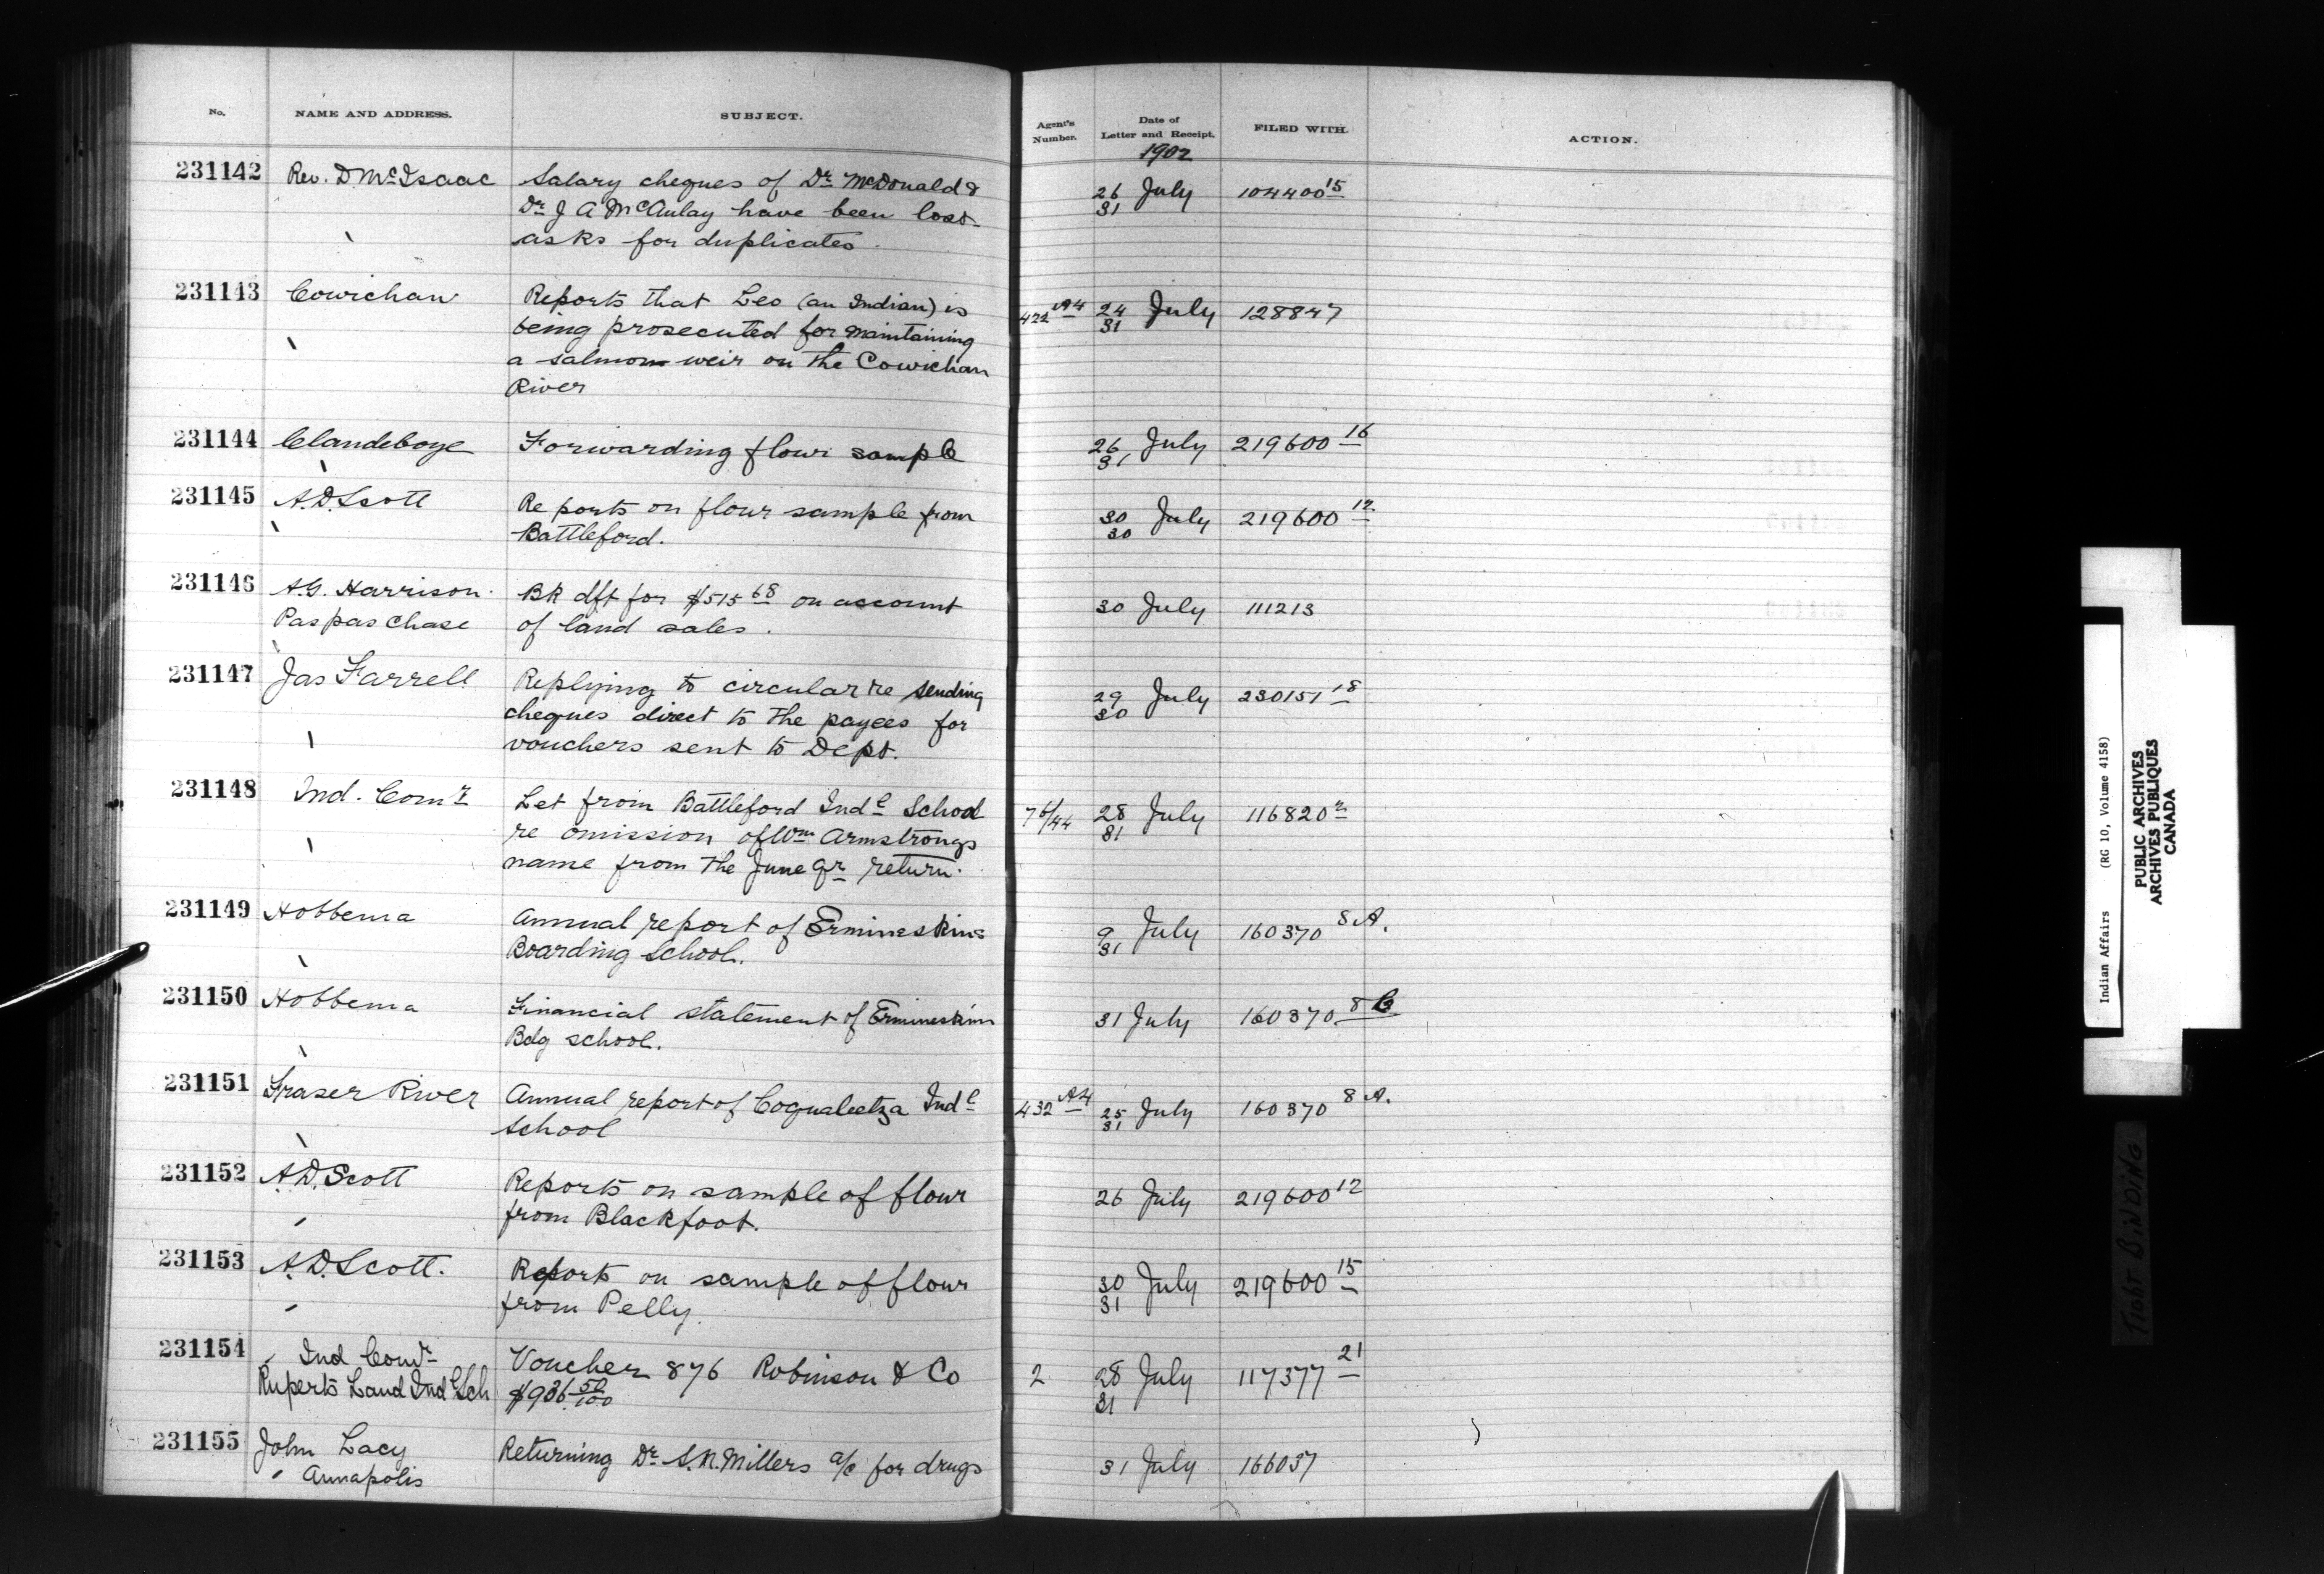 No. NAME AND ADDRESS. SUBJECT. Agent's Number. Date of Letter and Receipt. FILED WITH. ACTION.
1902
231142 Rev. D McIsaac Salary cheques of Dr McDonald & 26 July 104400 15
Dr J A McAulay have been lost 31
asks for duplicates.
231143 Cowichan Reports that Leo (an Indian) is 422 A4 24 July 128847
being prosecuted for maintaining 31
a salmon weir on the Cowichan
River
231144 Clandeboye Forwarding flour sample 26 July 219600 16
31
231145 A.D. Scott Reports on flour sample from 30 July 219600 12
Battleford. 30
231146 A.G. Harrison Bk dft for $515 68 on account 30 July 111213
Paspaschase of land sales.
231147 Jas Farrell Replying to circular re sending 29 July 230151 18
cheques direct to the payees for 30
vouchers sent to Dept.
231148 Ind. Comr Let from Battleford Indl School 76/44 28 July 116820 2
re omission of Wm Armstrongs 31
name from the June qr return.
231149 Hobbema Annual report of Ermineskins 9 July 160370 8 A.
Boarding School. 31
231150 Hobbema Financial statement of Ermineskin 31 July 160370 8 B
Bdg school.
231151 Fraser River Annual report of Coqualeetza Indl 432 A4 25 July 160370 8 A.
School 31
231152 A.D. Scott Reports on sample of flour 26 July 219600 12
from Blackfoot.
231153 A.D. Scott. Reports on sample of flour 30 July 219600 15
from Pelly. 31
231154 Ind Comr Voucher 876 Robinson & Co 2 28 July 117377 21
Ruperts Land Indl Sch $936 50/100 31
231155 John Lacy Returning Dr S.N. Millers a/c for drugs 31 July 166037
Annapolis
Indian Affairs (RG 10, Volume 4158)
PUBLIC ARCHIVES
ARCHIVES PUBLIQUES
CANADA
TIGHT BINDING